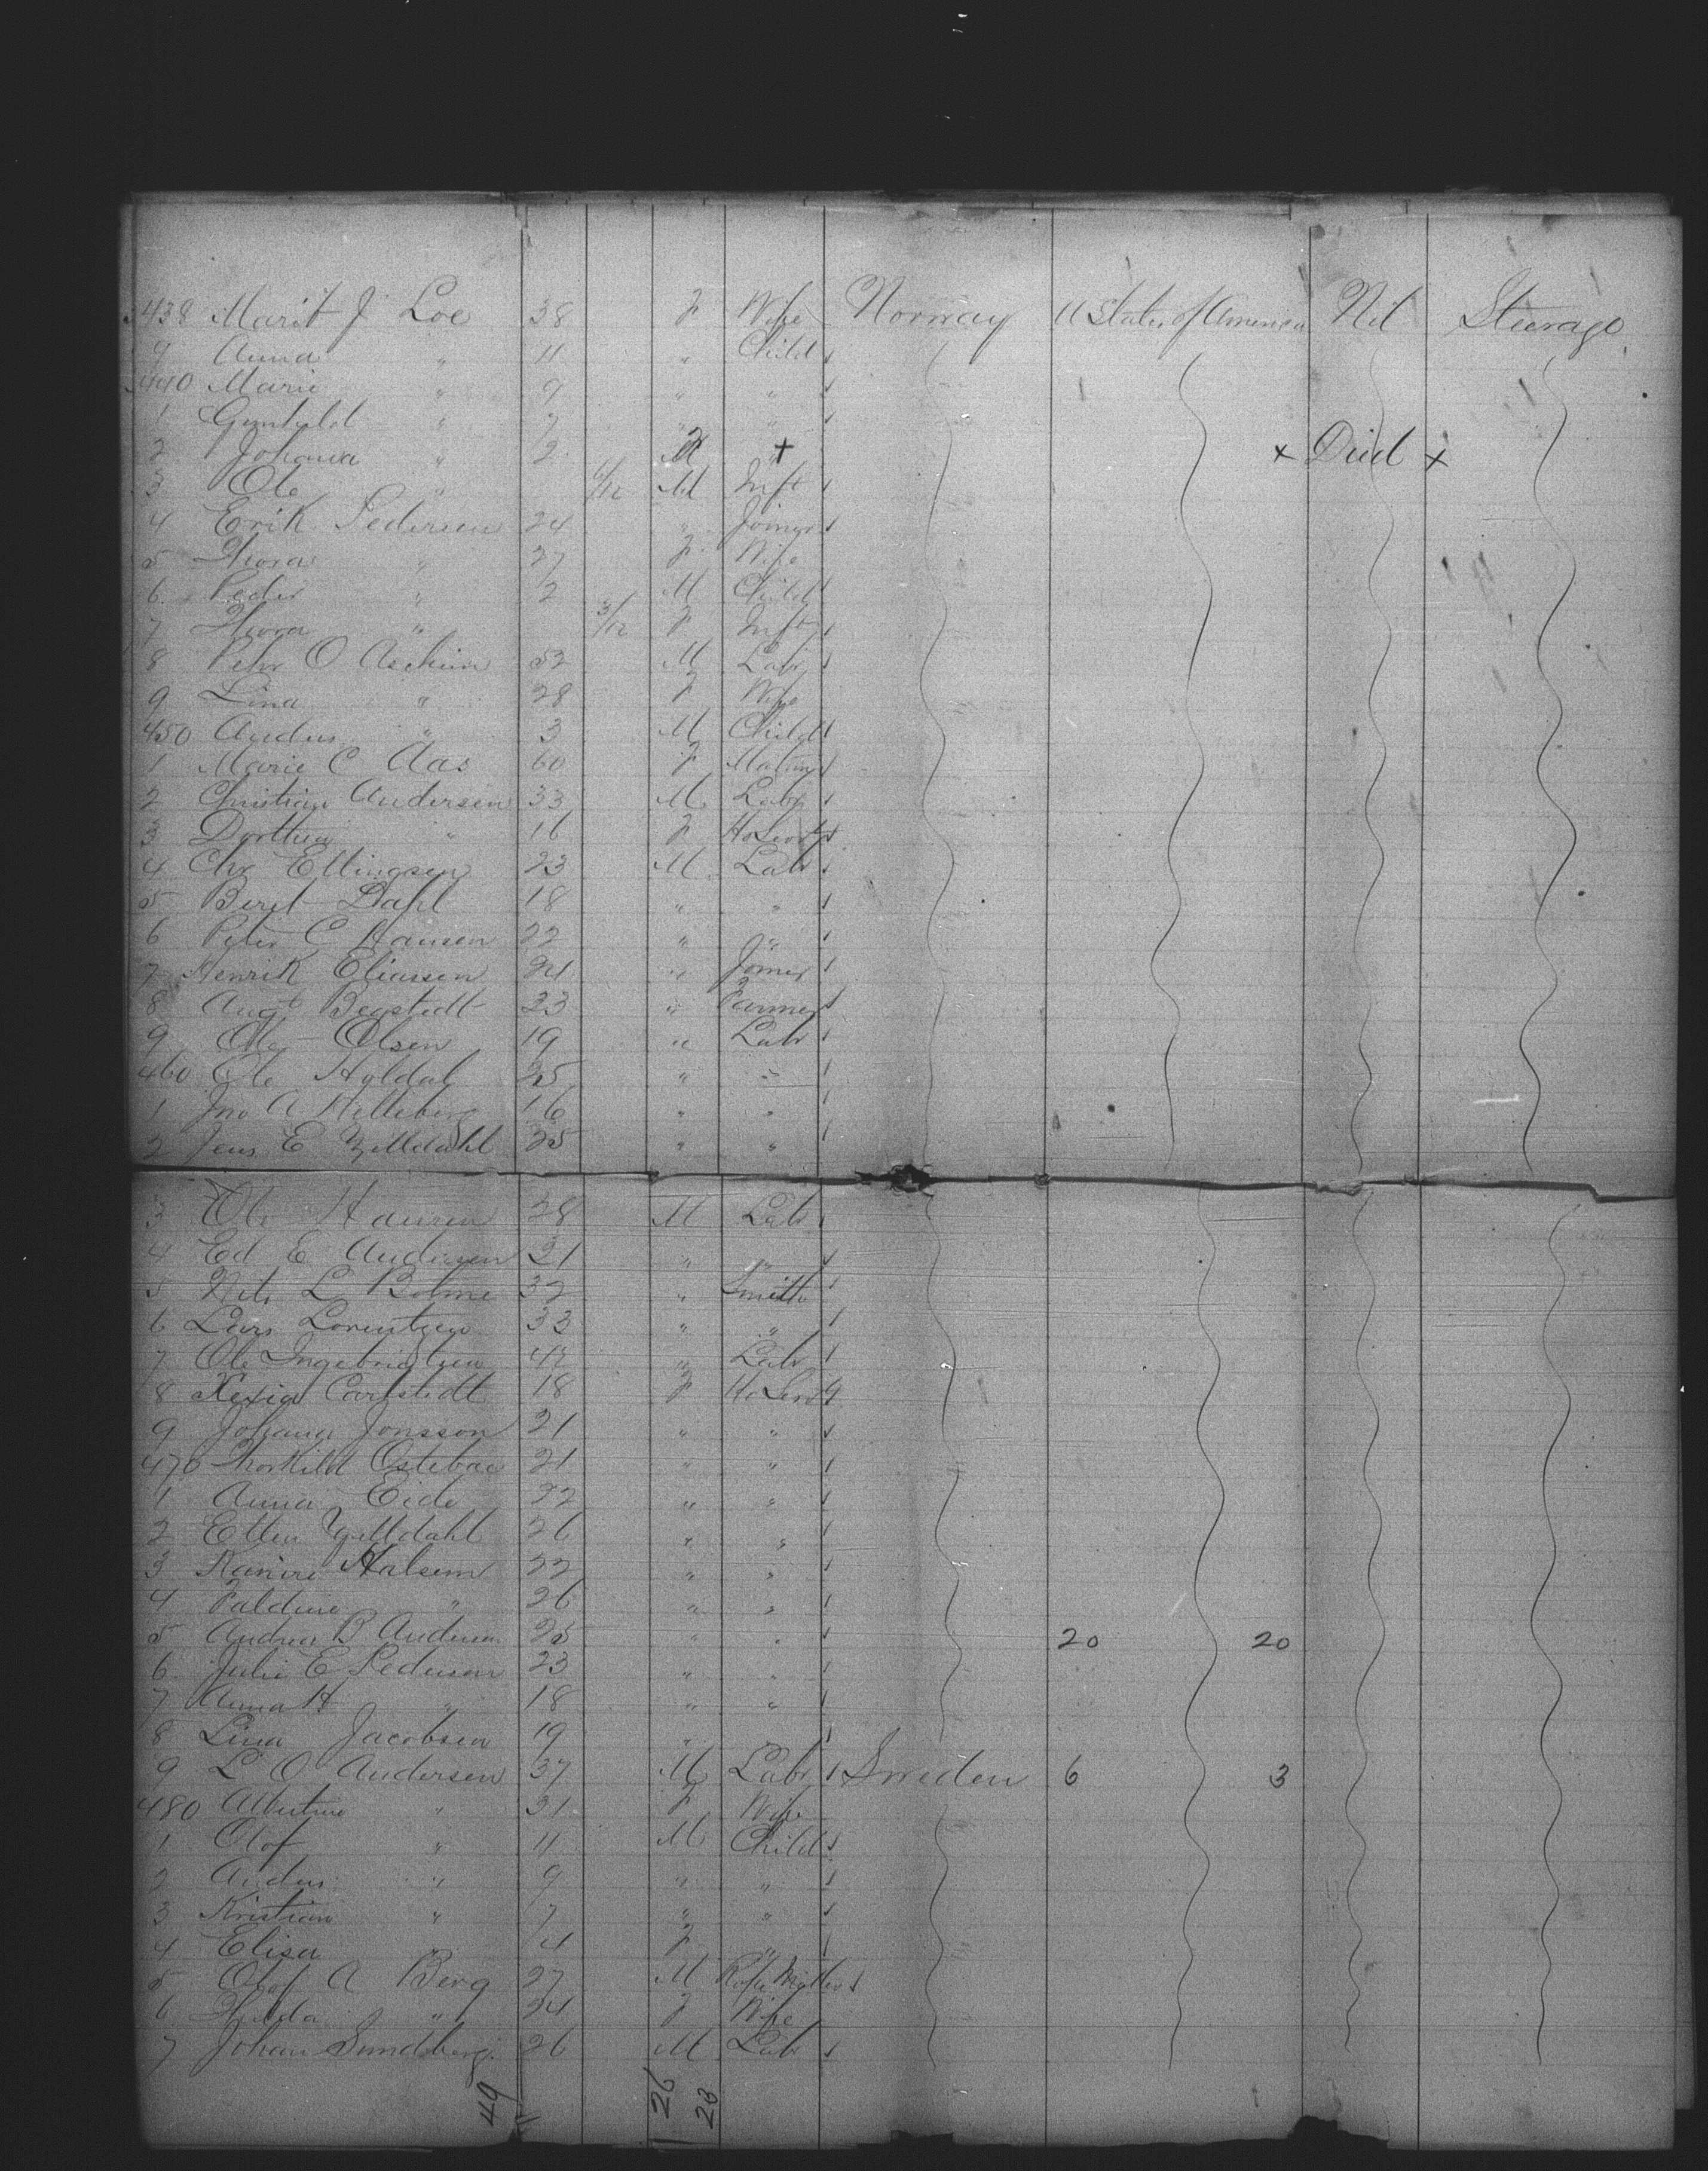 438 Marit J Loe 38 F Wife Norway U States of America Nil Steerage
9 Anna " 11 " Child
440 Marie " 9 " "
1 Gunhild " 7 " "
2 Johanna " 2 + × Died ×
3 Ole " /12 M Inft
4 Erik Pedersen 24 " Joiner
5 Thora " 27 F Wife
6 Peder " 2 M Child
7 Thora " 3/12 F Inft
8 Pehr O 52 M Labr
9 Lina " 28 F Wife
450 Anders " 3 M Child
1 Marie C Aas 60 F
2 Christian Andersen 33 M Labr
3 Dorthea " 16 F Ho Servt
4 Chr Ellingsen 23 M Labr
5 Beret Dahl 18 " "
6 Peter C Hansen 22 " "
7 Henrik Eliassen 24 " Joiner
8 Augt Begstedt 23 " Farmer
9 Ole Olsen 19 " Labr
460 Ole Hyldal 25 " "
1 Jno A Killeberg 16 " "
2 Jens E Gylldahl 25 " "
3 Ole Hansen 28 M Labr
4 Ed E Andersen 21 " "
5 Nils L Bolme 32 " Smith
6 Lars Lorentzen 33 " "
7 Ole Ingebrigtsen 42 " Labr
8 Carlstedt 18 F Ho Servt
9 Johana Jonsson 21 " "
470 Thorkild Ostebae 21 " "
1 Anna Eide 22 " "
2 Ellen Gylldahl 26 " "
3 Halsem 22 " "
4 " 26 " "
5 Andrea B Andersen 25 " " 20 20
6 Julie E Pedersen 23 " "
7 Anna H " 18 " "
8 Lina Jacobsen 19 "
9 L O Andersen 37 M Labr Sweden 6 3
480 Albertine " 31 F Wife
1 Olof " 11 M Child
2 Anders " 9 " "
3 Kristian " 7 " "
4 Elisa " 4 F "
5 Olof A Berg 27 M
6 Hilda " 24 F Wife
7 Johan Sundberg 26 M Labr
49 26 23